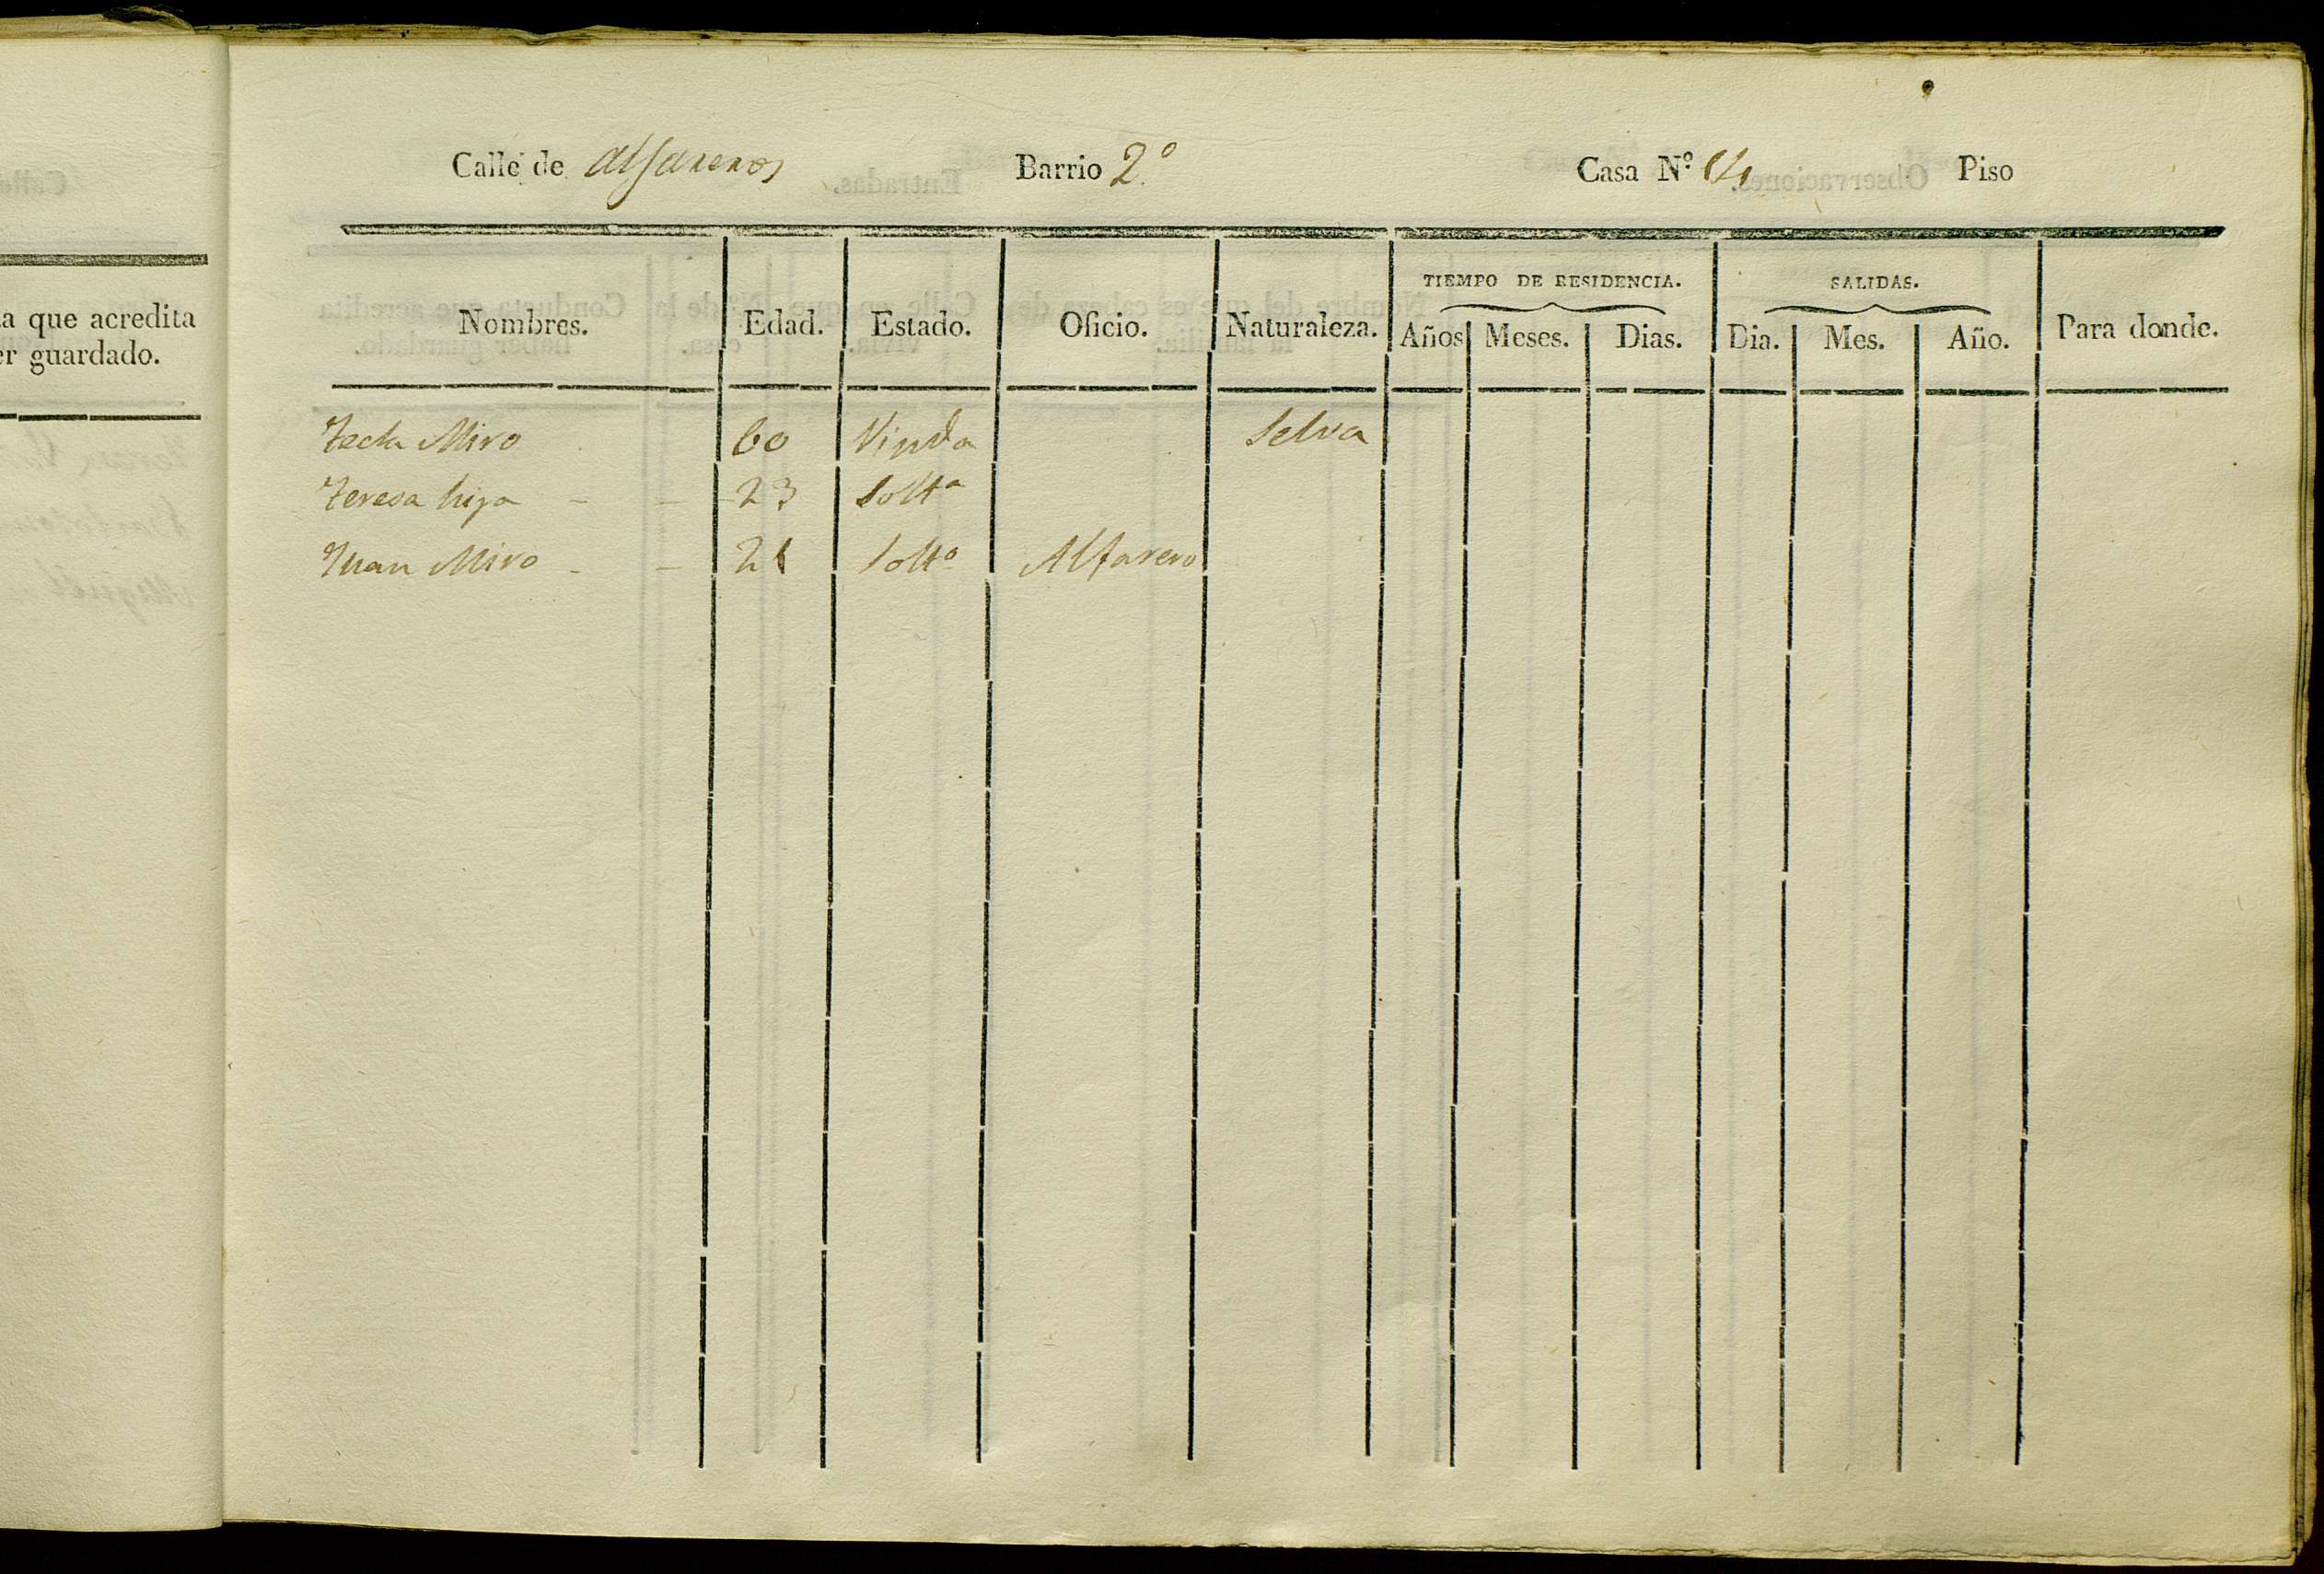 Calle de Alfareros Barrio 2.º Casa N.º 14 Piso
TIEMPO DE RESIDENCIA. SALIDAS.
Nombres. Edad. Estado. Oficio. Naturaleza. Años Meses. Dias. Dia. Mes. Año. Para donde.
Tecla Miro 60 Viuda Selva
Teresa hija - - 23 Soltª
Juan Miro - - 21 Soltº Alfarero
que acredita
guardado.